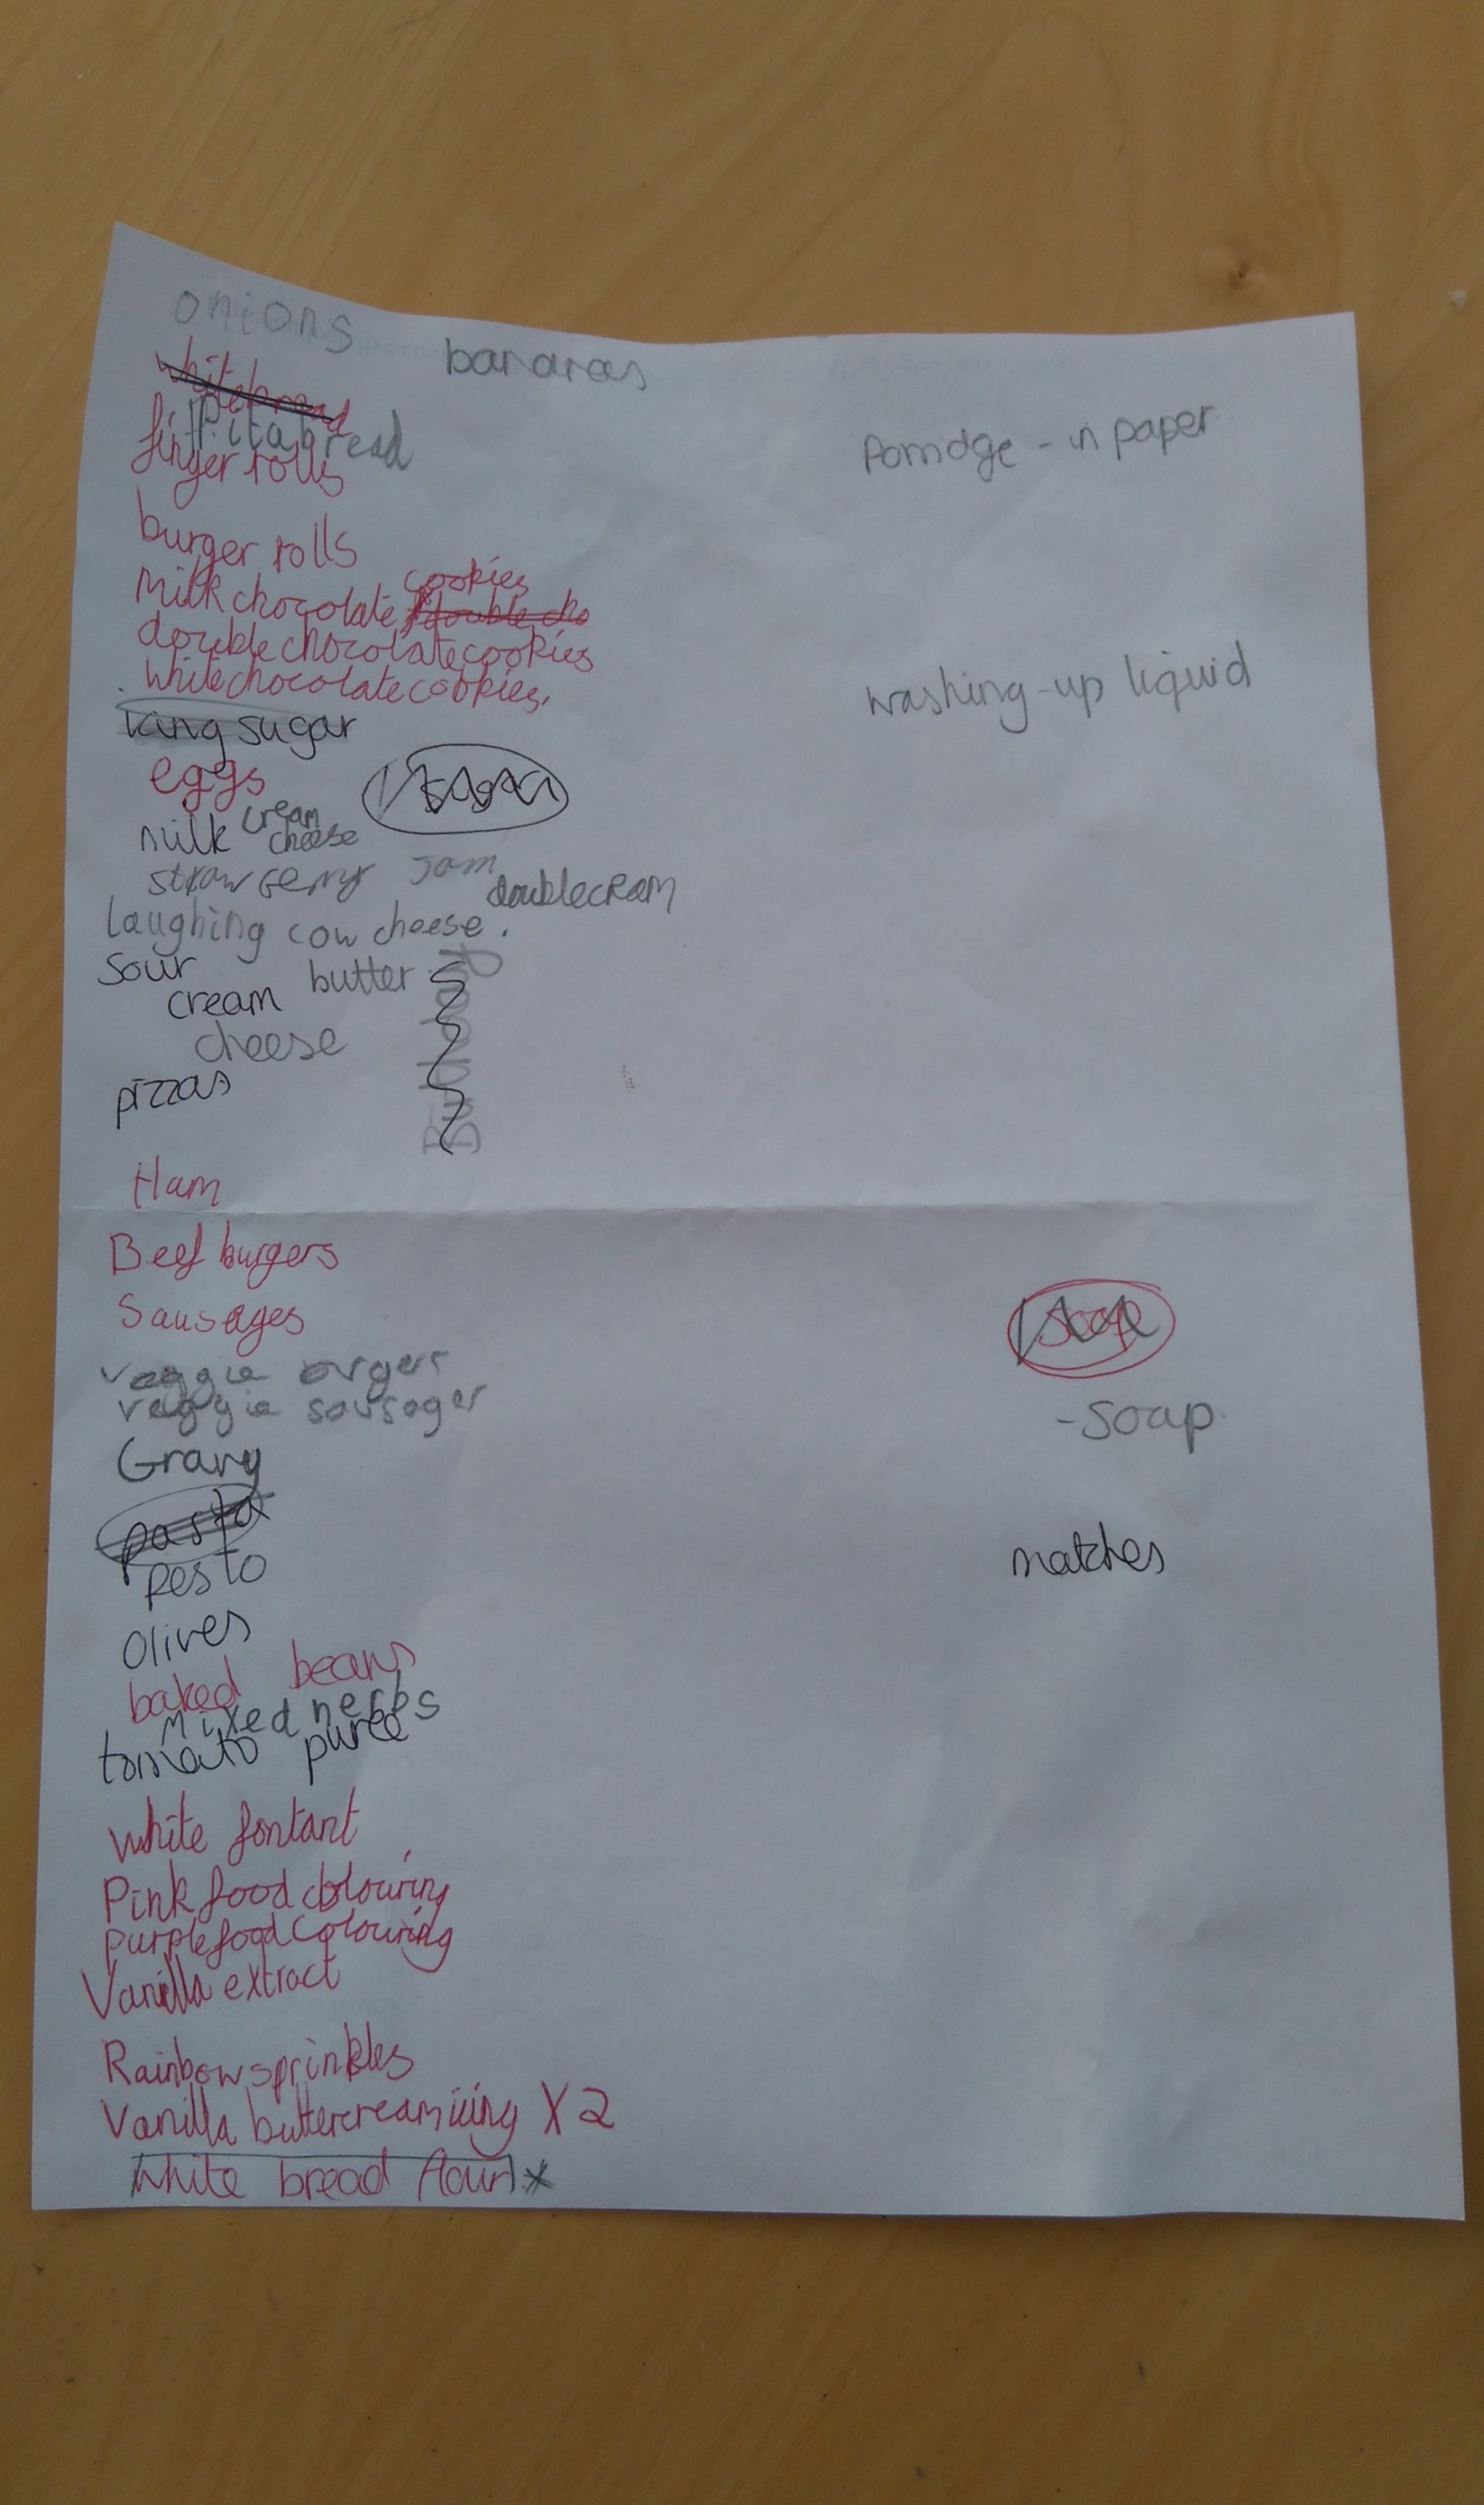 onions
bananas
whitebread
Pitabread
finger rolls
Porridge - in paper
burger rolls
cookies
Milk chocolate double cho
double chocolate cookies
white chocolate cookies.
washing-up liquid
icing sugar
eggs
milk cream cheese
strawberry Jam
double cream
laughing cow cheese.
Sour cream
butter
cheese
pizzas
Ham
Beef burgers
Sausages
soap
veggie burgers
veggie sausages
-Soap
Gravy
pasta
Pesto
matches
olives
baked beans
Mixed herbs
tomato puree
White fontant
Pink food colouring
purple food colouring
Vanilla extract
Rainbow sprinkles
Vanilla buttercream icing X2
White bread flour x